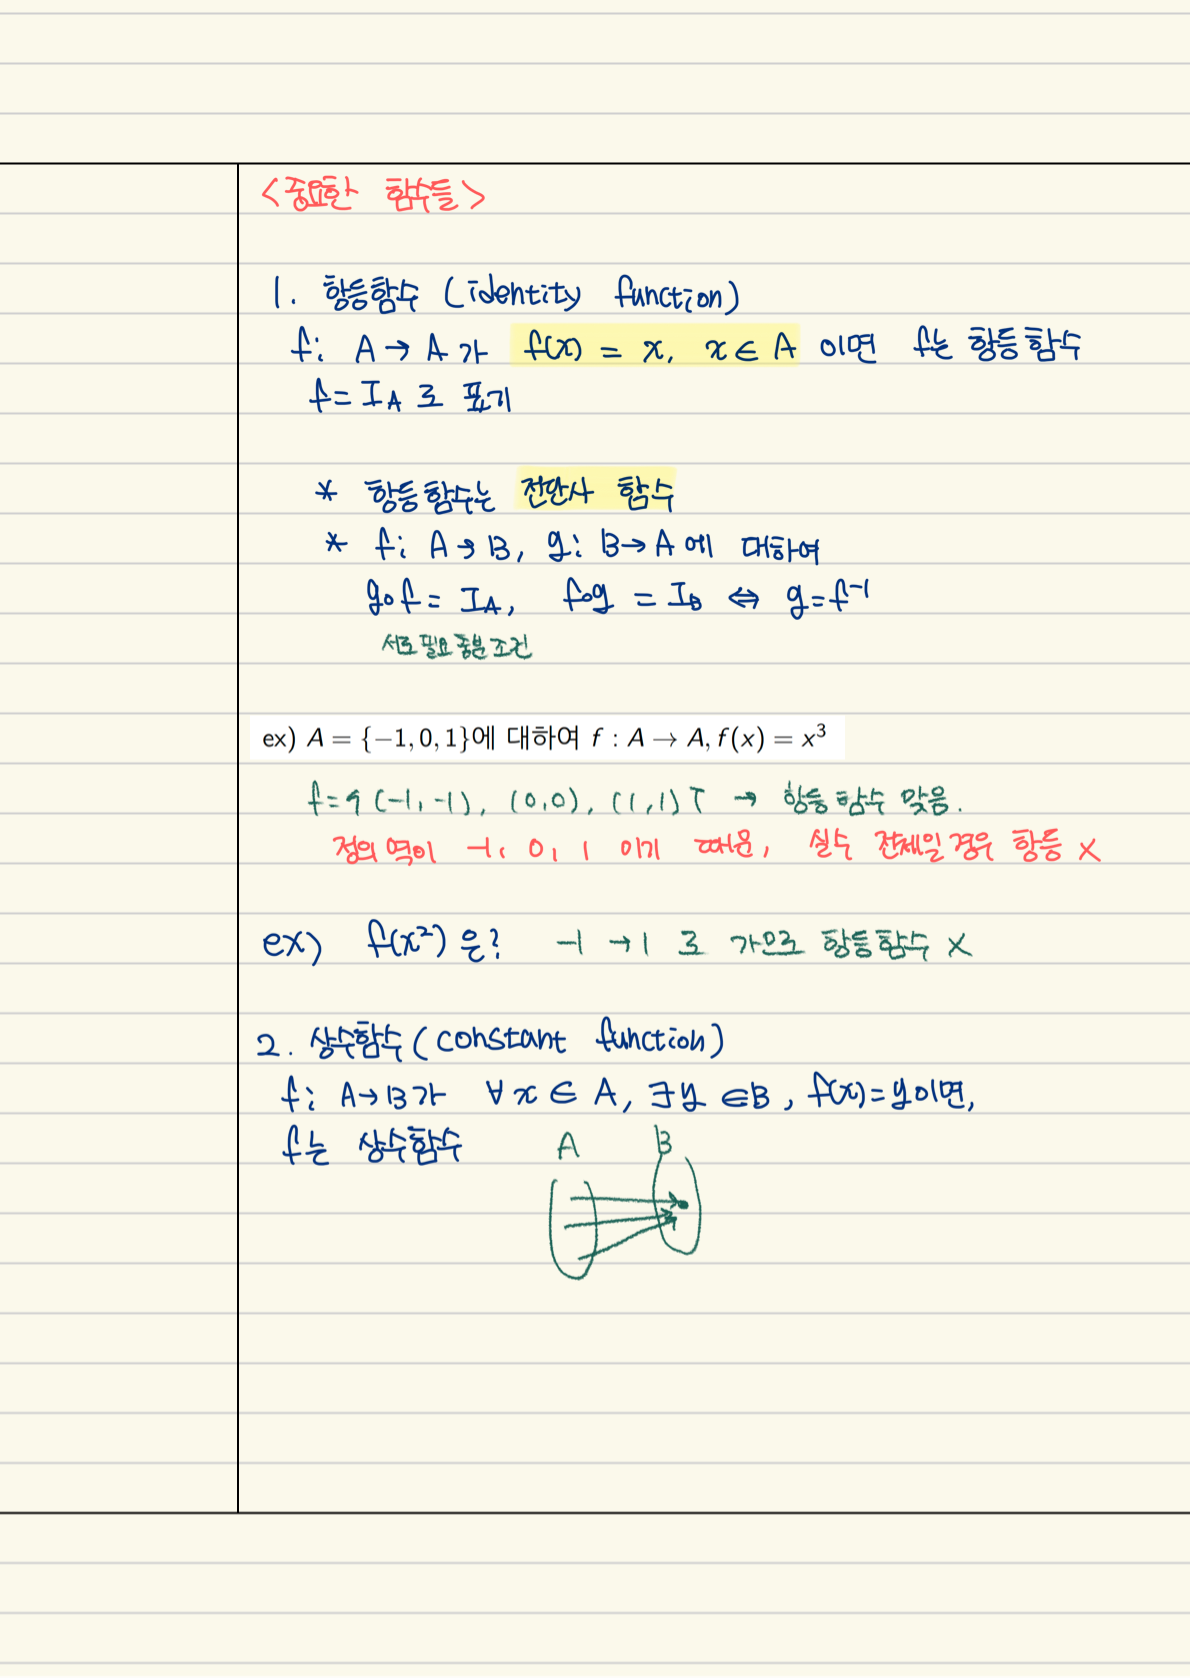 <중요한 함수들>
1. 항등함수 (identity function)
f: A → A 가 f(x) = x, x ∈ A 이면 f는 항등함수
f = I_A 로 표기
* 항등함수는 전단사 함수
* f: A → B, g: B → A 에 대하여
g∘f = I_A, f∘g = I_B ⇔ g = f⁻¹
서로 필요충분조건
ex) A = {−1, 0, 1}에 대하여 f : A → A, f(x) = x³
f = {(-1, -1), (0,0), (1,1)} → 항등함수 맞음.
정의역이 -1, 0, 1 이기 때문, 실수 전체일 경우 항등 X
ex) f(x²) 은? -1 → 1 로 가므로 항등함수 X
2. 상수함수 (constant function)
f: A → B가 ∀x ∈ A, ∃y ∈ B, f(x) = y이면,
f는 상수함수
A B